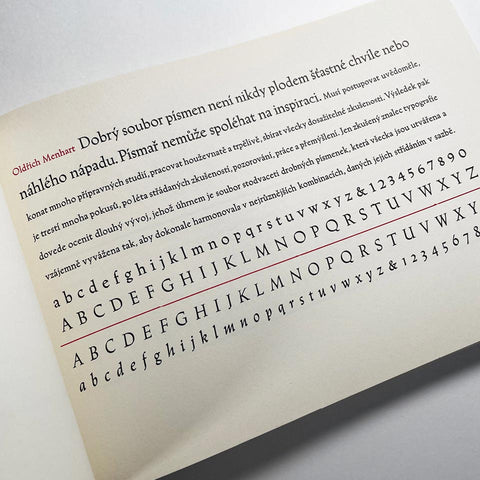 Oldřich Menhart Dobrý soubor písmen není nikdy plodem šťastné chvíle nebo
náhlého nápadu. Písmař nemůže spoléhat na inspiraci. Musí postupovat uvědoměle,
konat mnoho přípravných studií, pracovat houževnatě a trpělivě, sbírat všecky dosažitelné zkušenosti. Výsledek pak
je trestí mnoha pokusů, po léta střádaných zkušeností, pozorování, práce a přemýšlení. Jen zkušený znalec typografie
dovede ocenit dlouhý vývoj, jehož úhrnem je soubor stodvaceti drobných písmenek, která všecka jsou utvářena a
vzájemně vyvážena tak, aby dokonale harmonovala v nejrůznějších kombinacích, daných jejich střídáním v sazbě.
a b c d e f g h i j k l m n o p q r s t u v w x y z & 1 2 3 4 5 6 7 8 9 0
A B C D E F G H I J K L M N O P Q R S T U V W X Y Z
A B C D E F G H I J K L M N O P Q R S T U V W X Y
a b c d e f g h i j k l m n o p q r s t u v w x y z & 1 2 3 4 5 6 7 8